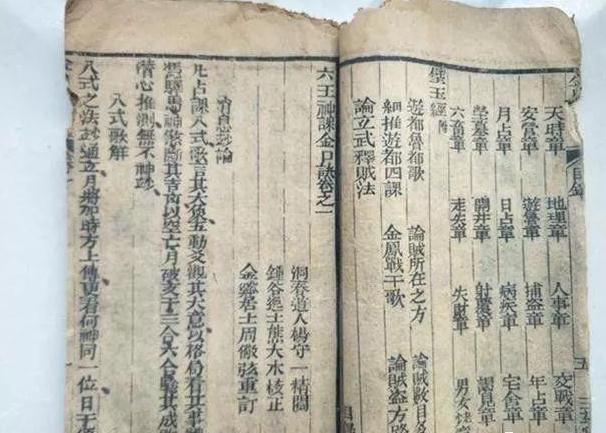 天時章 地理章 人事章 交戰章
安營章 遊魯章 捕盜章 年占章
月占章 日占章 疾病章 宅舍章
塋墓章 開井章 射覆章 謁見章
六畜章 走失章 失財章 男女
璧玉經附
遊都魯都歌 論賊所在之方 論賊數目多
細推遊都四課 金鳳戰干歌 論賊盜方
論立武釋賊法
六壬神課金口訣卷之一
洞春道人楊守一精閱
鍾谷逸士熊大木校正
金谿居士周儆弦重訂
消息玅論
凡占課入式歌言其大象五動爻觀其大意以格局看其事
馬驛馬神煞斷其吉凶以空亡月破亥干三合六合驗其成
潛心推測無不神妙
入式歌解
入式之法玅通立月將加時方上傳更看何神同一位日干